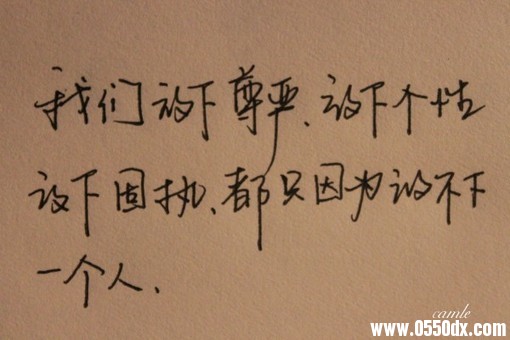 我们放下尊严、放下个性
放下固执、都只因为放不下
一个人、
camle
www.0550dx.com